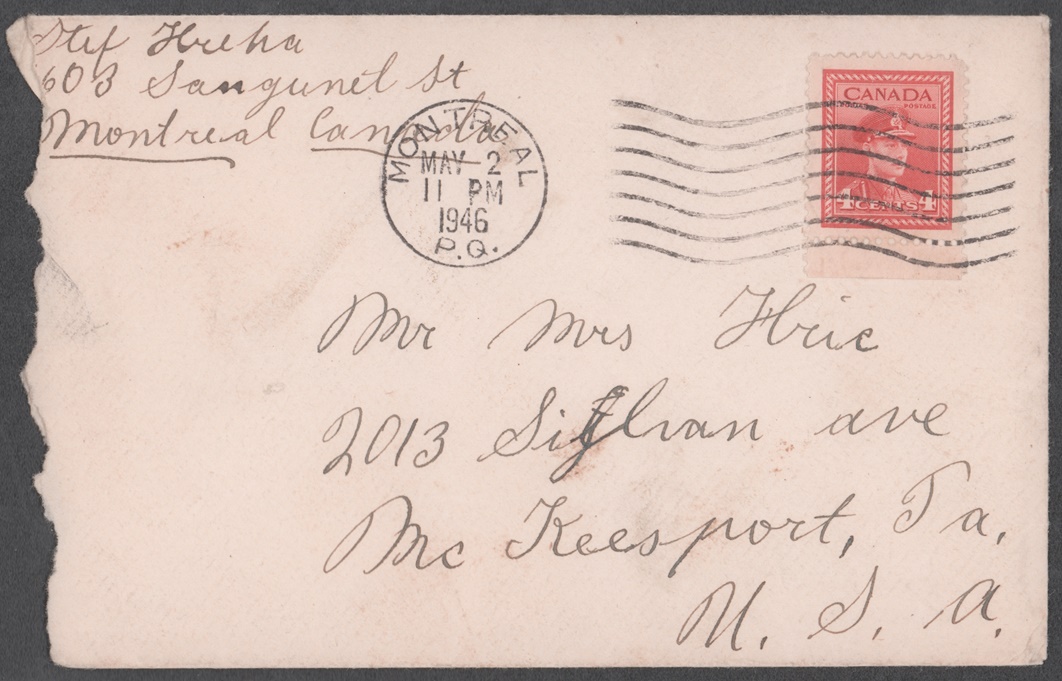 Stef Hreha
603 Sangunet St
Montreal Canada
MONTREAL
MAY 2
11 PM
1946
P.Q.
CANADA
POSTAGE
4 CENTS 4
Mr Mrs Hric
2013 ave
Mc Keesport, Pa.
U. S. A.